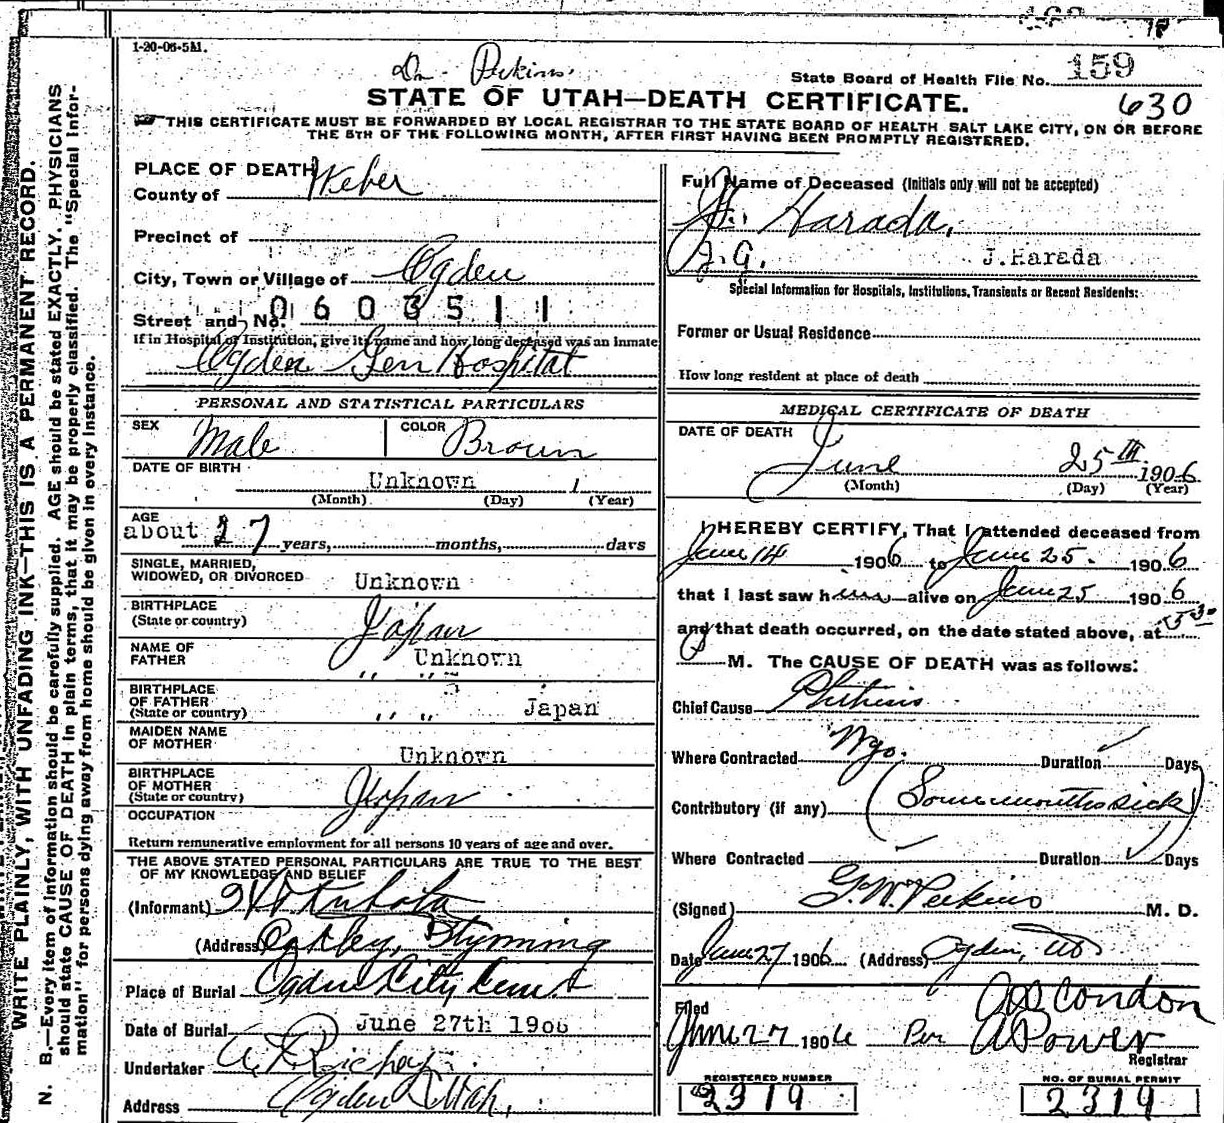 1-20-06-5M.
Dr. Perkins.
State Board of Health File No. 159
STATE OF UTAH—DEATH CERTIFICATE. 630
THIS CERTIFICATE MUST BE FORWARDED BY LOCAL REGISTRAR TO THE STATE BOARD OF HEALTH SALT LAKE CITY, ON OR BEFORE
THE 5TH OF THE FOLLOWING MONTH, AFTER FIRST HAVING BEEN PROMPTLY REGISTERED.
WRITE PLAINLY, WITH UNFADING INK—THIS IS A PERMANENT RECORD.
N. B.—Every item of information should be carefully supplied. AGE should be stated EXACTLY. PHYSICIANS
should state CAUSE OF DEATH in plain terms, that it may be properly classified. The "Special Infor-
mation" for persons dying away from home should be given in every instance.
PLACE OF DEATH
County of Weber
Precinct of
City, Town or Village of Ogden
Street and No. 0603511
If in Hospital or Institution, give its name and how long deceased was an inmate
Ogden Gen Hospital
PERSONAL AND STATISTICAL PARTICULARS
SEX Male COLOR Brown
DATE OF BIRTH
Unknown 1
(Month) (Day) (Year)
AGE
about 27 years, months, days
SINGLE, MARRIED,
WIDOWED, OR DIVORCED Unknown
BIRTHPLACE
(State or country) Japan
NAME OF
FATHER Unknown
" "
BIRTHPLACE
OF FATHER
(State or country) " " Japan
MAIDEN NAME
OF MOTHER
Unknown
BIRTHPLACE
OF MOTHER
(State or country) Japan
OCCUPATION
Return remunerative employment for all persons 10 years of age and over.
THE ABOVE STATED PERSONAL PARTICULARS ARE TRUE TO THE BEST
OF MY KNOWLEDGE AND BELIEF
(Informant) Kubota
(Address) Oakley, Wyoming
Place of Burial Ogden City Cem
Date of Burial June 27th 1906
Undertaker Richey
Address Ogden Utah.
Full Name of Deceased (Initials only will not be accepted)
Harada,
J. G. J.Harada
Special Information for Hospitals, Institutions, Transients or Recent Residents:
Former or Usual Residence
How long resident at place of death
MEDICAL CERTIFICATE OF DEATH
DATE OF DEATH
June 25th 1906
(Month) (Day) (Year)
I HEREBY CERTIFY, That I attended deceased from
June 14 1906 to June 25. 1906
that I last saw him alive on June 25 1906
and that death occurred, on the date stated above, at 5 30
M. The CAUSE OF DEATH was as follows:
Chief Cause Phthisis
Where Contracted Wyo. Duration Days
Contributory (if any) (Some months sick)
Where Contracted Duration Days
(Signed) G. W. Perkins M. D.
Date June 27 1906 (Address) Ogden, Ut
Filed Condon
June 27 1906 Per A Power
Registrar
REGISTERED NUMBER
2319
NO. OF BURIAL PERMIT
2319